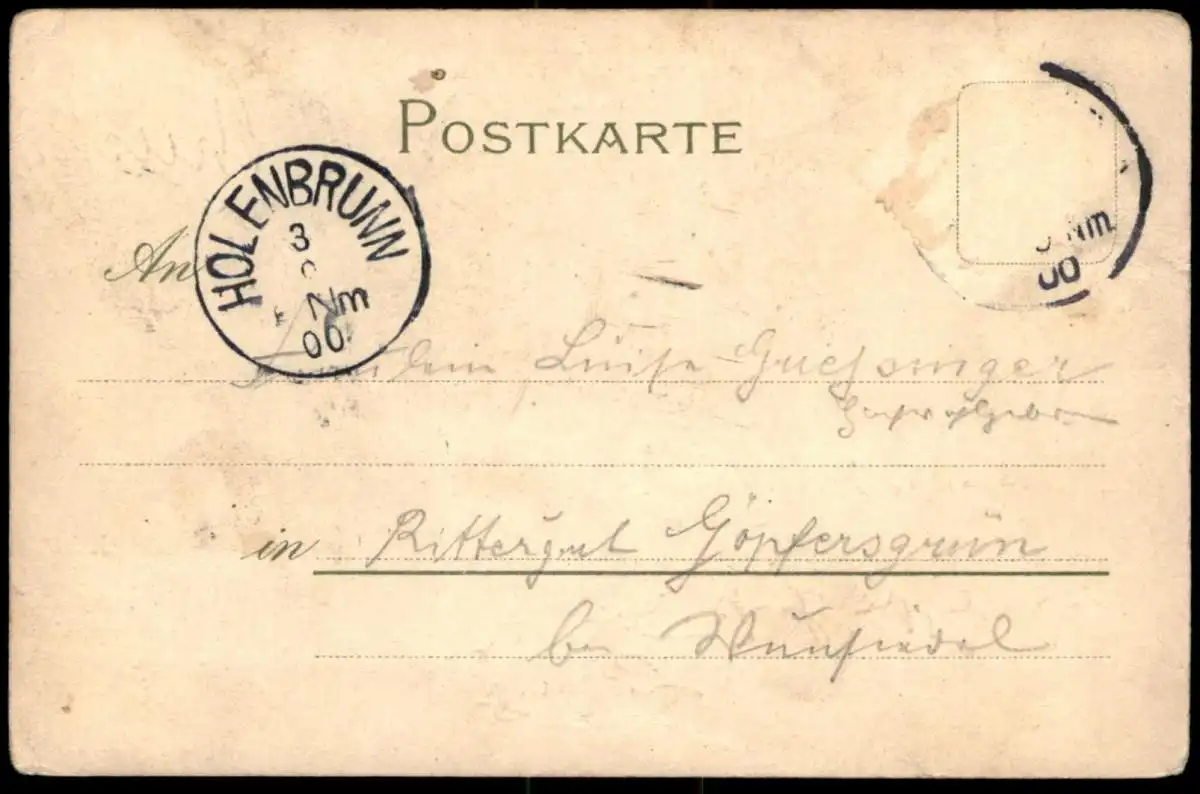 POSTKARTE
HOLENBRUNN
3
Nm
00
Nm
00
An
Fräulein Luise
in Rittergut Göpfersgrün
bei Wunsiedel